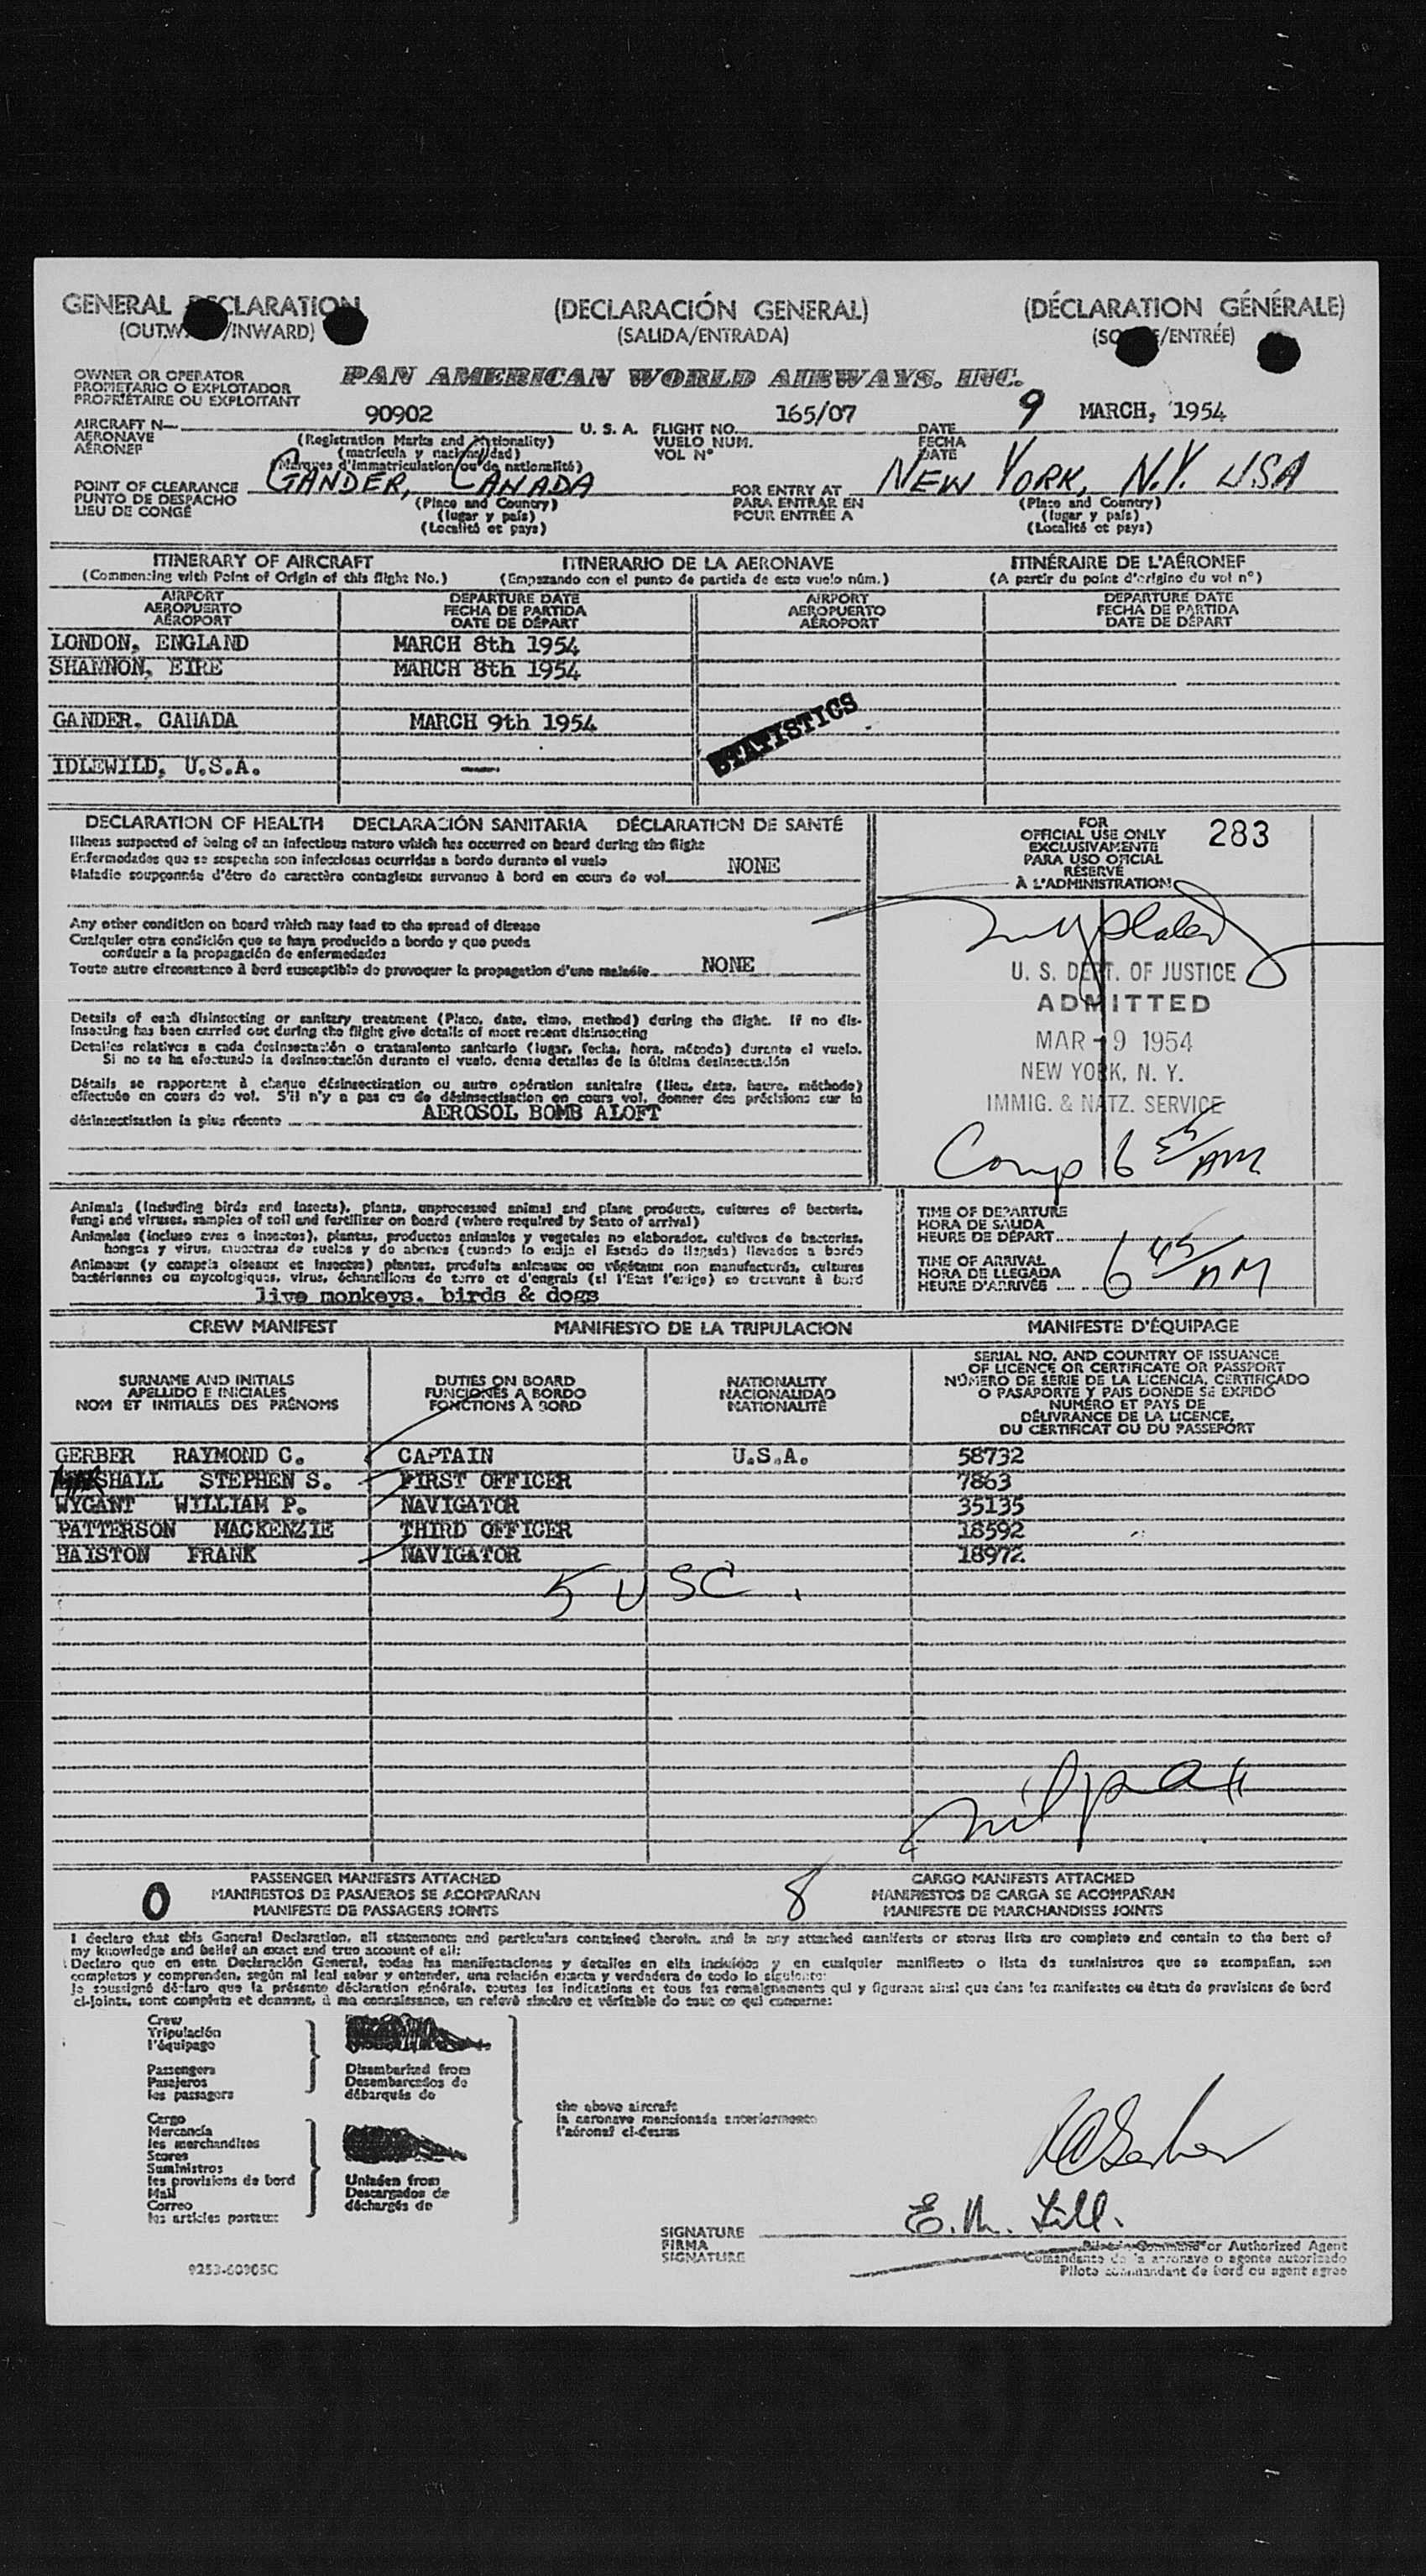 GENERAL DECLARATION (DECLARACIÓN GENERAL) (DÉCLARATION GÉNÉRALE)
(OUTWARD/INWARD) (SALIDA/ENTRADA) (SORTIE/ENTRÉE)
OWNER OR OPERATOR
PROPIETARIO O EXPLOTADOR
PROPRIÉTAIRE OU EXPLOITANT
PAN AMERICAN WORLD AIRWAYS, INC.
AIRCRAFT N— 90902 U. S. A. FLIGHT NO. 165/07 DATE 9 MARCH, 1954
AERONAVE (Registration Marks and Nationality) VUELO NUM. FECHA
AÉRONEF (matrícula y nacionalidad) VOL Nº DATE
(Marques d'immatriculation ou de nationalité)
POINT OF CLEARANCE GANDER, CANADA FOR ENTRY AT NEW YORK, N.Y. USA
PUNTO DE DESPACHO (Place and Country) PARA ENTRAR EN (Place and Country)
LIEU DE CONGÉ (lugar y país) POUR ENTRÉE A (lugar y país)
(Localité et pays) (Localité et pays)
ITINERARY OF AIRCRAFT ITINERARIO DE LA AERONAVE ITINÉRAIRE DE L'AÉRONEF
(Commencing with Point of Origin of this flight No.) (Empezando con el punto de partida de este vuelo núm.) (A partir du point d'origine du vol nº)
AIRPORT DEPARTURE DATE AIRPORT DEPARTURE DATE
AEROPUERTO FECHA DE PARTIDA AEROPUERTO FECHA DE PARTIDA
AÉROPORT DATE DE DÉPART AÉROPORT DATE DE DÉPART
LONDON, ENGLAND MARCH 8th 1954
SHANNON, EIRE MARCH 8th 1954
GANDER. CANADA MARCH 9th 1954
STATISTICS
IDLEWILD, U.S.A. —
DECLARATION OF HEALTH DECLARACIÓN SANITARIA DÉCLARATION DE SANTÉ
Illness suspected of being of an infectious nature which has occurred on board during the flight
Enfermedades que se sospecha son infecciosas ocurridas a bordo durante el vuelo
Maladie soupçonnée d'être de caractère contagieux survenue à bord en cours de vol NONE
Any other condition on board which may lead to the spread of disease
Cualquier otra condición que se haya producido a bordo y que pueda
conducir a la propagación de enfermedades
Toute autre circonstance à bord susceptible de provoquer la propagation d'une maladie NONE
Details of each disinsecting or sanitary treatment (Place, date, time, method) during the flight. If no dis-
insecting has been carried out during the flight give details of most recent disinsecting
Detalles relativos a cada desinsectación o tratamiento sanitario (lugar, fecha, hora, método) durante el vuelo.
Si no se ha efectuado la desinsectación durante el vuelo, dense detalles de la última desinsectación
Détails se rapportant à chaque désinsectisation ou autre opération sanitaire (lieu, date, heure, méthode)
effectuée en cours de vol. S'il n'y a pas eu de désinsectisation en cours vol, donner des précisions sur la
désinsectisation la plus récente AEROSOL BOMB ALOFT
FOR
OFFICIAL USE ONLY
EXCLUSIVAMENTE
PARA USO OFICIAL
RÉSERVÉ
À L'ADMINISTRATION
283
U. S. DEPT. OF JUSTICE
ADMITTED
MAR - 9 1954
NEW YORK, N. Y.
IMMIG. & NATZ. SERVICE
Comp 6 55/AM
Animals (including birds and insects), plants, unprocessed animal and plane products, cultures of bacteria,
fungi and viruses, samples of soil and fertilizer on board (where required by State of arrival)
Animales (incluso aves e insectos), plantas, productos animales y vegetales no elaborados, cultivos de bacterias,
hongos y virus, muestras de suelos y de abonos (cuando lo exija el Estado de llegada) llevados a bordo
Animaux (y compris oiseaux et insectes) plantes, produits animaux ou végétaux non manufacturés, cultures
bactériennes ou mycologiques, virus, échantillons de terre et d'engrais (si l'État l'exige) se trouvant à bord
live monkeys. birds & dogs
TIME OF DEPARTURE
HORA DE SALIDA
HEURE DE DÉPART
TIME OF ARRIVAL
HORA DE LLEGADA
HEURE D'ARRIVÉE 6 45/AM
CREW MANIFEST MANIFIESTO DE LA TRIPULACION MANIFESTE D'ÉQUIPAGE
SURNAME AND INITIALS DUTIES ON BOARD NATIONALITY SERIAL NO. AND COUNTRY OF ISSUANCE
APELLIDO E INICIALES FUNCIONES A BORDO NACIONALIDAD OF LICENCE OR CERTIFICATE OR PASSPORT
NOM ET INITIALES DES PRÉNOMS FONCTIONS À BORD NATIONALITÉ NÚMERO DE SERIE DE LA LICENCIA, CERTIFICADO
O PASAPORTE Y PAIS DONDE SE EXPIDÓ
NUMÉRO ET PAYS DE
DÉLIVRANCE DE LA LICENCE,
DU CERTIFICAT OU DU PASSEPORT
GERBER RAYMOND C. CAPTAIN U.S.A. 58732
SHALL STEPHEN S. FIRST OFFICER 7863
WYGANT WILLIAM P. NAVIGATOR 35135
PATTERSON MACKENZIE THIRD OFFICER 18592
HAISTON FRANK NAVIGATOR 18972
5 USC.
nil pax
0 PASSENGER MANIFESTS ATTACHED 8 CARGO MANIFESTS ATTACHED
MANIFIESTOS DE PASAJEROS SE ACOMPAÑAN MANIFIESTOS DE CARGA SE ACOMPAÑAN
MANIFESTE DE PASSAGERS JOINTS MANIFESTE DE MARCHANDISES JOINTS
I declare that this General Declaration, all statements and particulars contained therein, and in any attached manifests or stores lists are complete and contain to the best of
my knowledge and belief an exact and true account of all:
Declaro que en esta Declaración General, todas las manifestaciones y detalles en ella incluidos y en cualquier manifiesto o lista de suministros que se acompañan, son
completos y comprenden, según mi leal saber y entender, una relación exacta y verdadera de todo lo siguiente:
Je soussigné déclare que la présente déclaration générale, toutes les indications et tous les renseignements qui y figurent ainsi que dans les manifestes ou états de provisions de bord
ci-joints, sont complets et donnent, à ma connaissance, un relevé sincère et véritable de tout ce qui concerne:
Crew
Tripulación
l'équipage
Passengers Disembarked from
Pasajeros Desembarcados de
les passagers débarqués de
the above aircraft
la aeronave mencionada anteriormente
l'aéronef ci-dessus
Cargo
Mercancía
les marchandises
Stores
Suministros
les provisions de bord Unladen from
Mail Descargados de
Correo déchargés de
les articles postaux
RCGerber
E. M. Lill.
SIGNATURE
FIRMA
SIGNATURE
Pilot in Command or Authorized Agent
Comandante de la aeronave o agente autorizado
Pilote commandant de bord ou agent agréé
9253-60305C